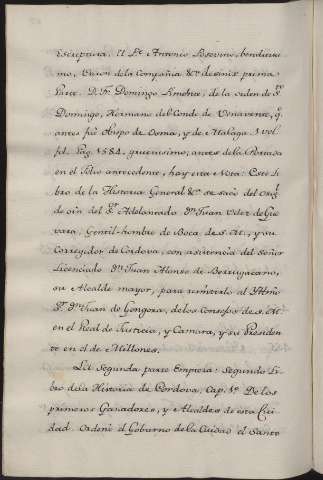 Escriptura. El Pe. Antonio Posevino, benditissi
mo, Varon de la Compañia &c. desinit prima
Parte. D. Fr. Domingo Pimentel, de la orden de Sto.
Domingo, Hermano del Conde de Venavente, q.
antes fué Obispo de Osma, y de Malaga. 1 vol.
fol. Pag. 1584. gruesisimo, antes de la Portada
en el folio antecedente, hay esta Nota: Este Li
bro de la Historia General &c. se sacó del Orig.l
de oin del Sr. Adelantado Dn. Juan Velez de Gue
vara, Gentil-hombre de Boca de S. M., y su
Corregidor de Cordova, con asistencia del Señor
Licenciado Dn. Juan Alonso de Berrugacano,
su Alcalde mayor, para remitirlo al Ylmo.
Sr. Dn. Juan de Gongora, de los Consejos de S. M.
en el Real de Justicia, y Camara, y su Presiden
te en el de Millones.
La Segunda parte Empieza: Segundo Li
bro de la Historia de Cordova. Cap. 1o. De los
primeros Ganadores, y Alcaldes de esta Ciu
dad. Ordenó el Gobierno de la Ciudad el Santo